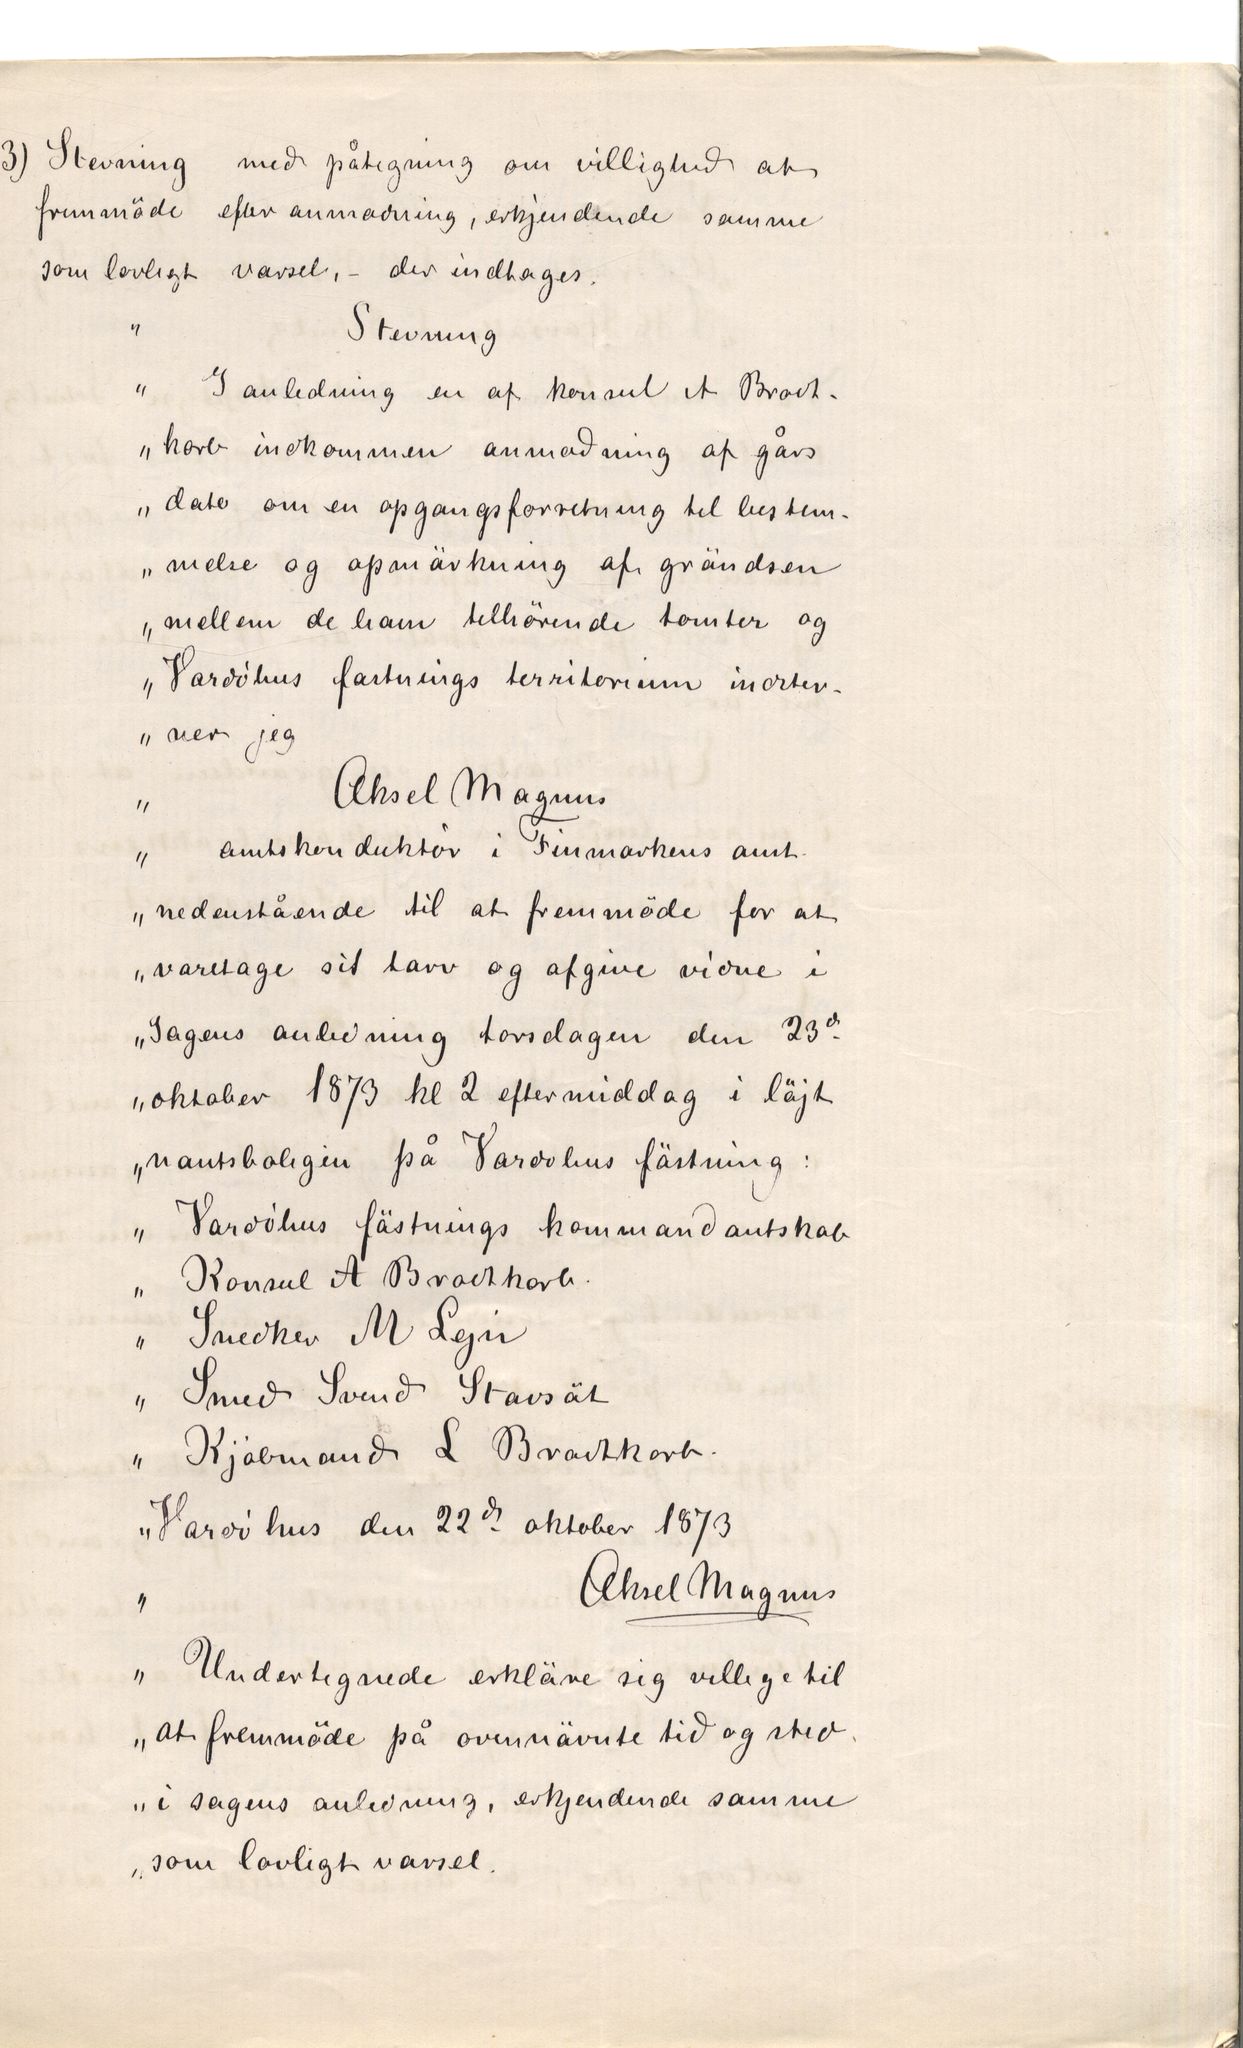 3) Stevning med påtegning om villighed at
fremmöde efter anmodning, erkjendende samme
som lovligt varsel, - der indtages.
" Stevning
" I anledning en af konsul A Brodt-
" korb indkommen anmodning af gårs
" dato om en opgangsforretning til bestem-
" melse og opmärkning af grändsen
" mellem de ham tilhörende tomter og
" Vardöhus fästnings territorium indstev-
" ner jeg
" Aksel Magnus
" amtskonduktör i Finmarkens amt
" nedenstående til at fremmöde for at
" varetage sit tarv og afgive vidne i
" Sagens anledning torsdagen den 23d
" oktober 1873 kl 2 eftermiddag i läjt
" nantsboligen på Vardöhus fästning:
" Vardöhus fästnings kommandantskab
" Konsul A Brodtkorb.
" Snedker M Lejn
" Smed Svend Stavsät
" Kjöbmand L Brodtkorb.
" Vardöhus den 22d oktober 1873
" Aksel Magnus
" Undertegnede erkläre sig villige til
" at fremmöde på ovennävnte tid og sted
" i sagens anledning, erkjendende samme
" som lovligt varsel.